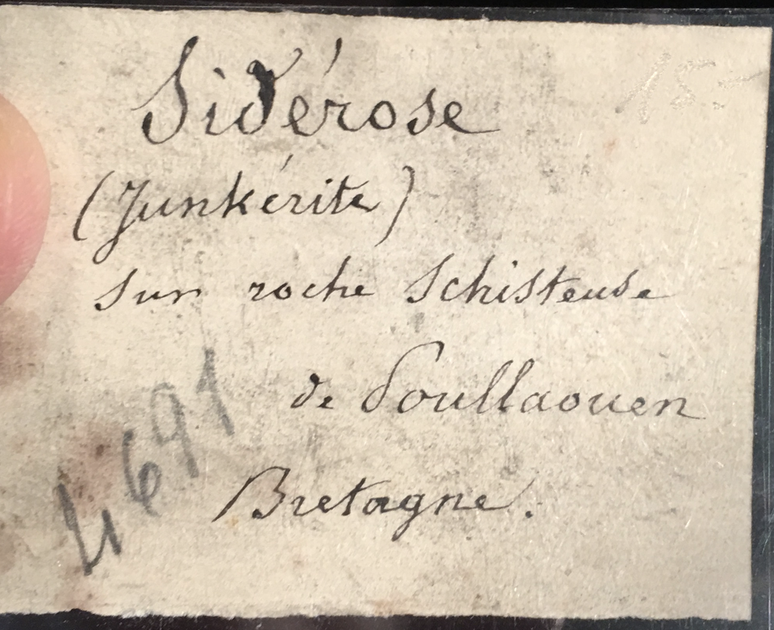 Sidérose
(Junkérite)
sur roche Schisteuse
de Poullaouen
Bretagne.
4691
15-